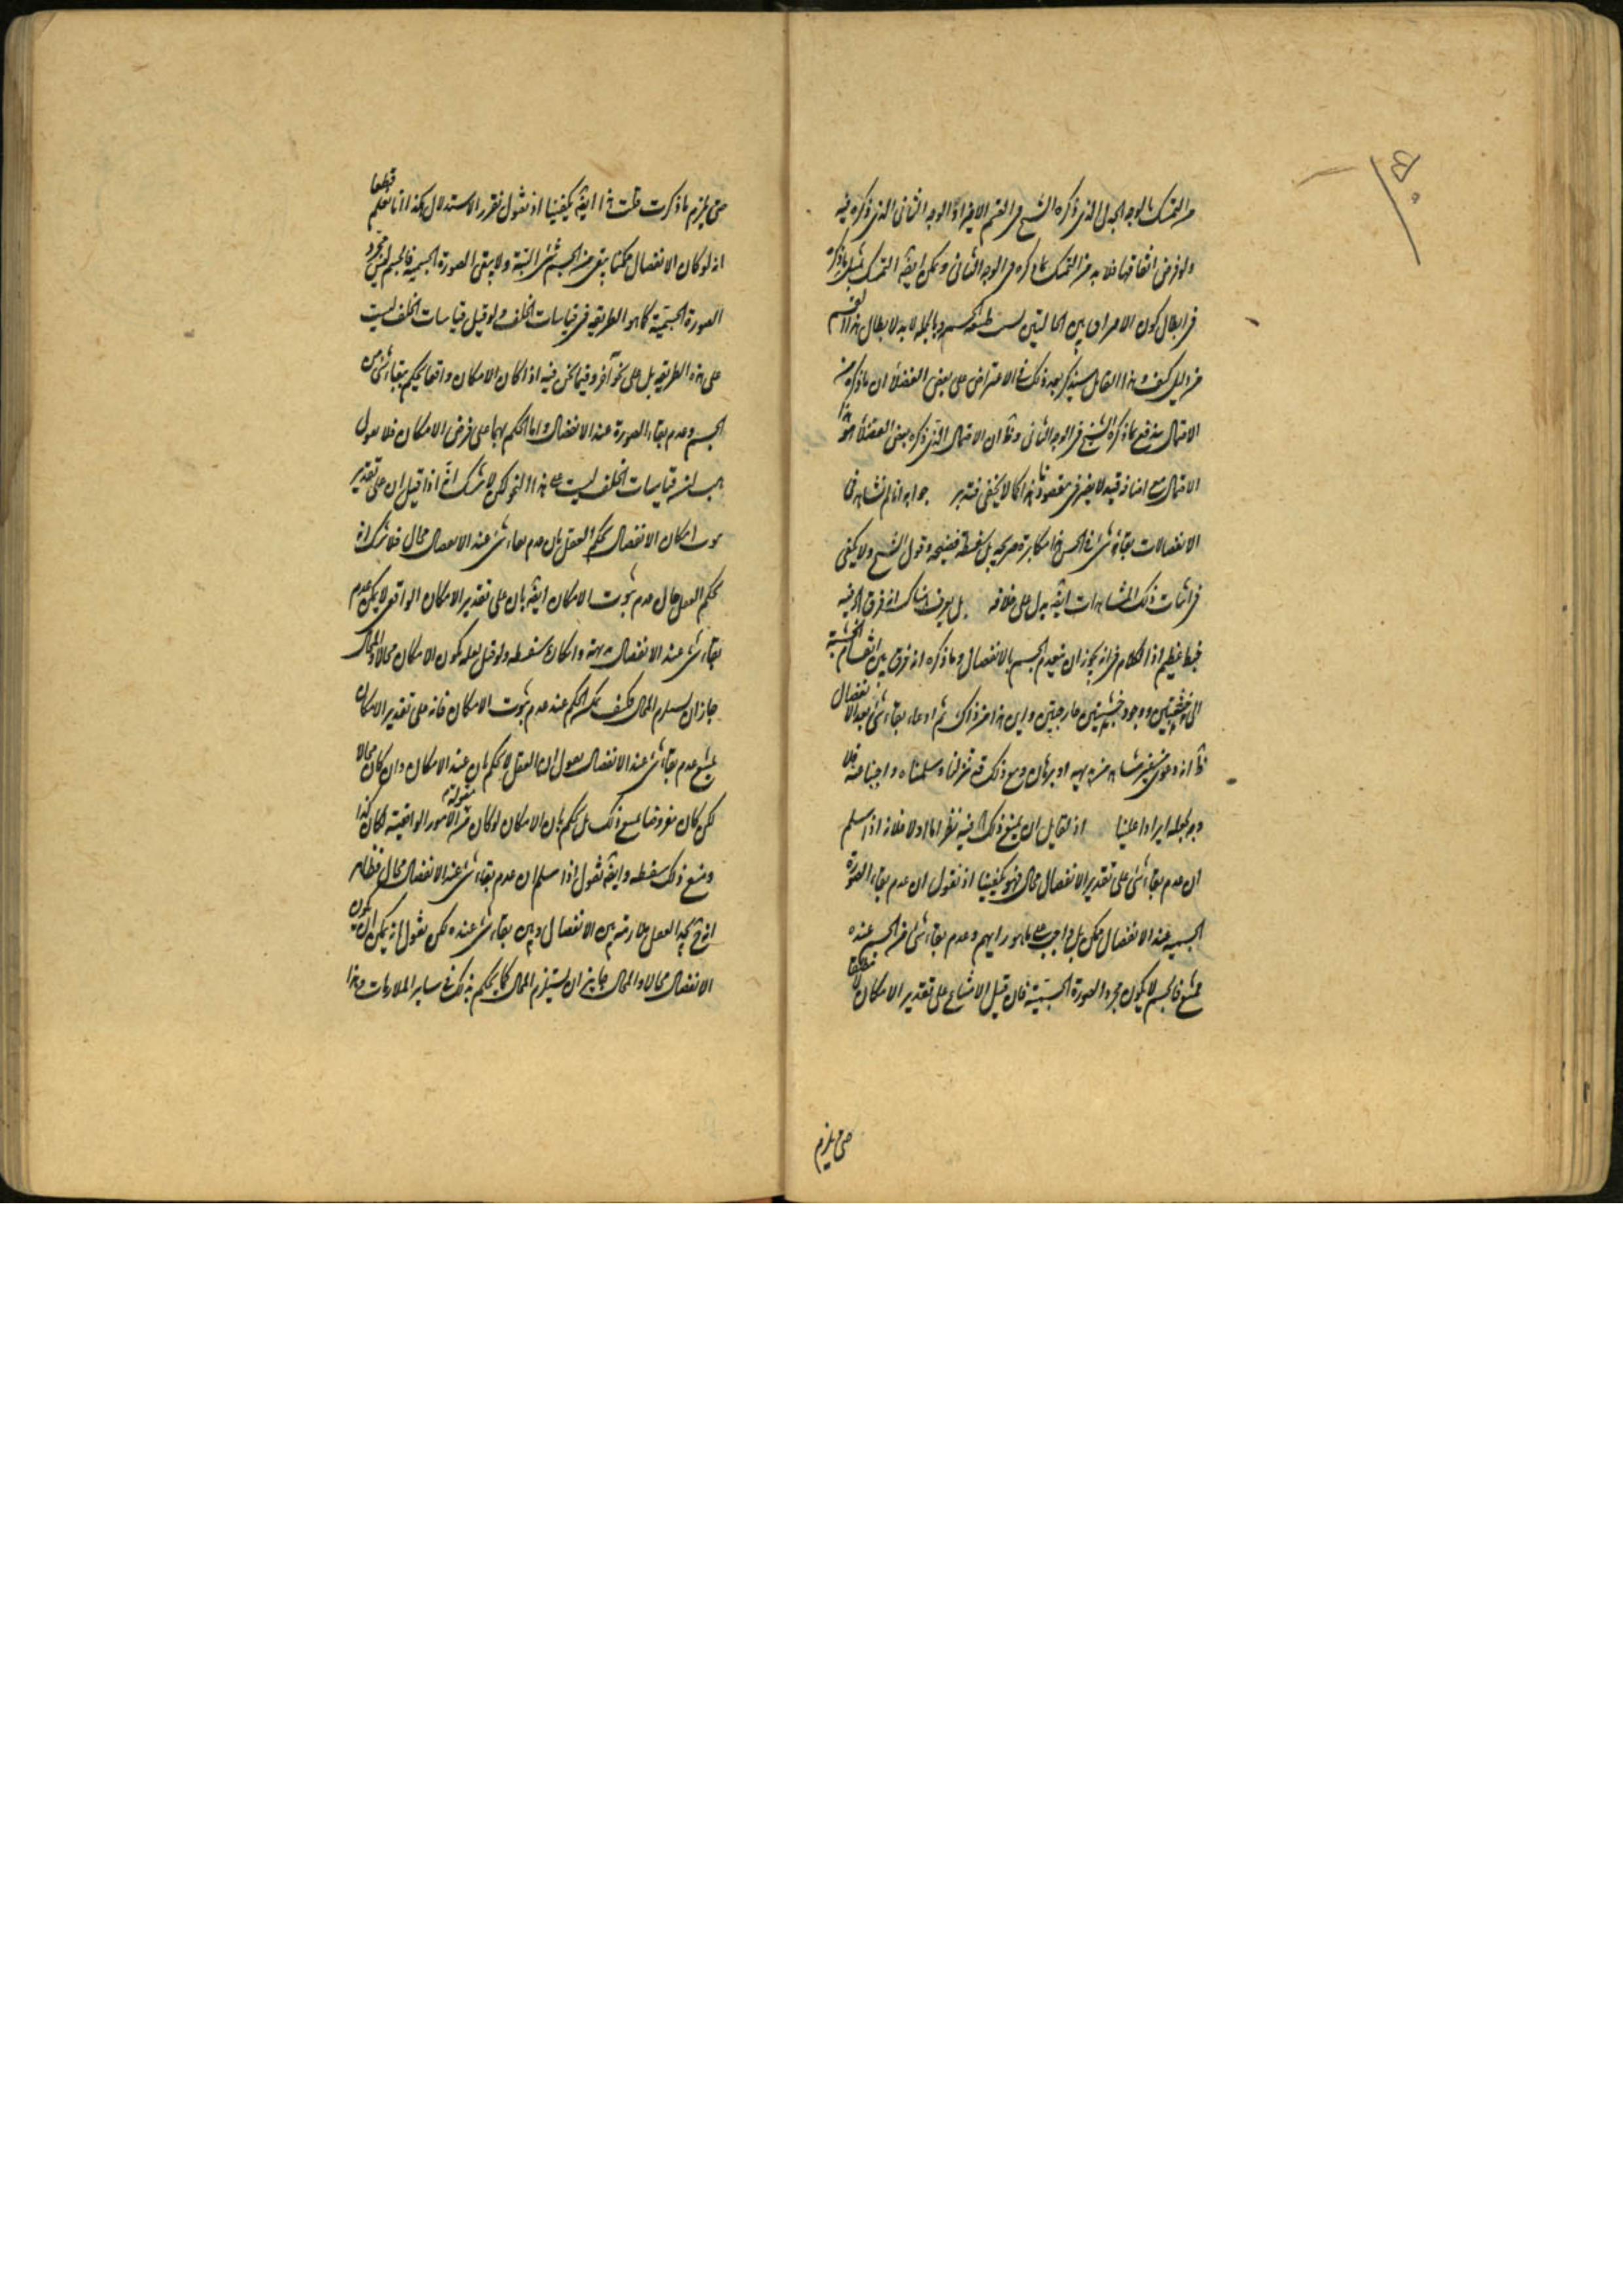 من التمسك بالوجه الجدلى الذى ذكره الشيخ فى القسم الاخير او الوجه الثانى الذى ذكره فيه
ولو فرض اتفاقها فلا بد من التمسك بما ذكره فى الوجه الثانى ويمكن ايضا التمسك بمثل ما ذكره
فى ابطال كون الامر اى بين الحالتين وبالجملة لا بد لابطال هذا القسم
من دليل كيف وهذا القائل سيذكر بعد ذلك فى الاعتراض على بعض الفضلا ان ما ذكره من
الاحتمال يندفع بما ذكره الشيخ فى الوجه الثانى وظ ان الاحتمال الذى ذكره بعض الفضلا هو هذا
الاحتمال مع اضافة قيد لا يضر فى مقصودنا هذا كما لا يخفى فتدبر جوابه انا لم نشاهد فى
الانفصالات بقاء شئ فى الحس هذا مكابرة صريحة بل سفسطة فضيحة وقول الشيخ ولا يكفى
فى اثبات ذلك المشاهدات ايضا يدل على خلافه بل يعرف هناك انه فرق الخ فيه
خبط عظيم اذ الكلام فى انه يجوز ان ينعدم الجسم بالانفصال وما ذكره انه فرق بين انقسام الخشبة
الى خشبتين ووجود خشبتين خارجيتين واين هذا من ذاك ثم ادعاء بقاء شئ بعد الانفصال
ظ انه دعوى بغير مشاهدة من بديهة او برهان ومع ذلك قد تنزلنا وسلمناه واجبنا عنه فلا
وجه لجعله ايرادا علينا اذ لقايل ان يمنع ذلك الخ فيه نظر اما اولا فلانه اذا سلم
ان عدم بقاء شئ على تقدير الانفصال محال فهو يكفينا اذ نقول ان عدم بقاء الصورة
الجسمية عند الانفصال ممكن بل واجب على ما هو رايهم وعدم بقاء شئ من الجسم عنده
ممتنع فالجسم لا يكون مجرد الصورة الجسمية فان قيل الامتناع على تقدير الامكان لا مطلقا
حتى يلزم
حتى يلزم ما ذكرت قلت هذا ايضا يكفينا اذ نقول نقرر الاستدلال هكذا انا نعلم قطعا
انه لو كان الانفصال ممكنا يبقى من الجسم شئ البتة ولا يبقى الصورة الجسمية فالجسم ليس مجرد
الصورة الجسمية كما هو الطريقة فى قياسات الخلف ولو قيل قياسات الخلف ليست
على هذه الطريقة بل على نحو آخر وفيما نحن فيه اذا كان الامكان واقعا يحكم ببقاء شئ من
الجسم وعدم بقاء الصورة عند الانفصال واما الحكم بهما على فرض الامكان فلا نقول
هب ان قياسات الخلف ليست على هذا النحو لكن لا شك انه اذا قيل ان على تقدير
ثبوت امكان الانفصال يحكم العقل بان عدم بقاء شئ عند الانفصال محال فلا شك انه
يحكم العقل حال عدم ثبوت الامكان ايضا بان على تقدير الامكان الواقعى لا يمكن عدم
بقاء شئ عند الانفصال بديهة وانكاره سفسطة ولو قيل لعله يكون الامكان محالا والمحال
جاز ان يستلزم المحال فكيف يمكن الحكم عند عدم ثبوت الامكان فانه على تقدير الامكان
يمتنع عدم بقاء شئ عند الانفصال نقول ان العقل لا يحكم بان عند الامكان وان كان محالا
لكن كان مفروضا يمتنع ذلك بل يحكم بان الامكان لو كان من الامور الواقعية لكان كذا
ومنع ذلك سفسطة وايضا نقول اذا سلم ان عدم بقاء شئ عند الانفصال محال فظاهر
انه ح يجد العقل ملازمة بين الانفصال وبين بقاء شئ عنده لكن نقول انه يمكن ان يكون
الانفصال محالا والمحال جايز ان يستلزم المحال كما يحكم بذلك فى ساير الملازمات وهذا